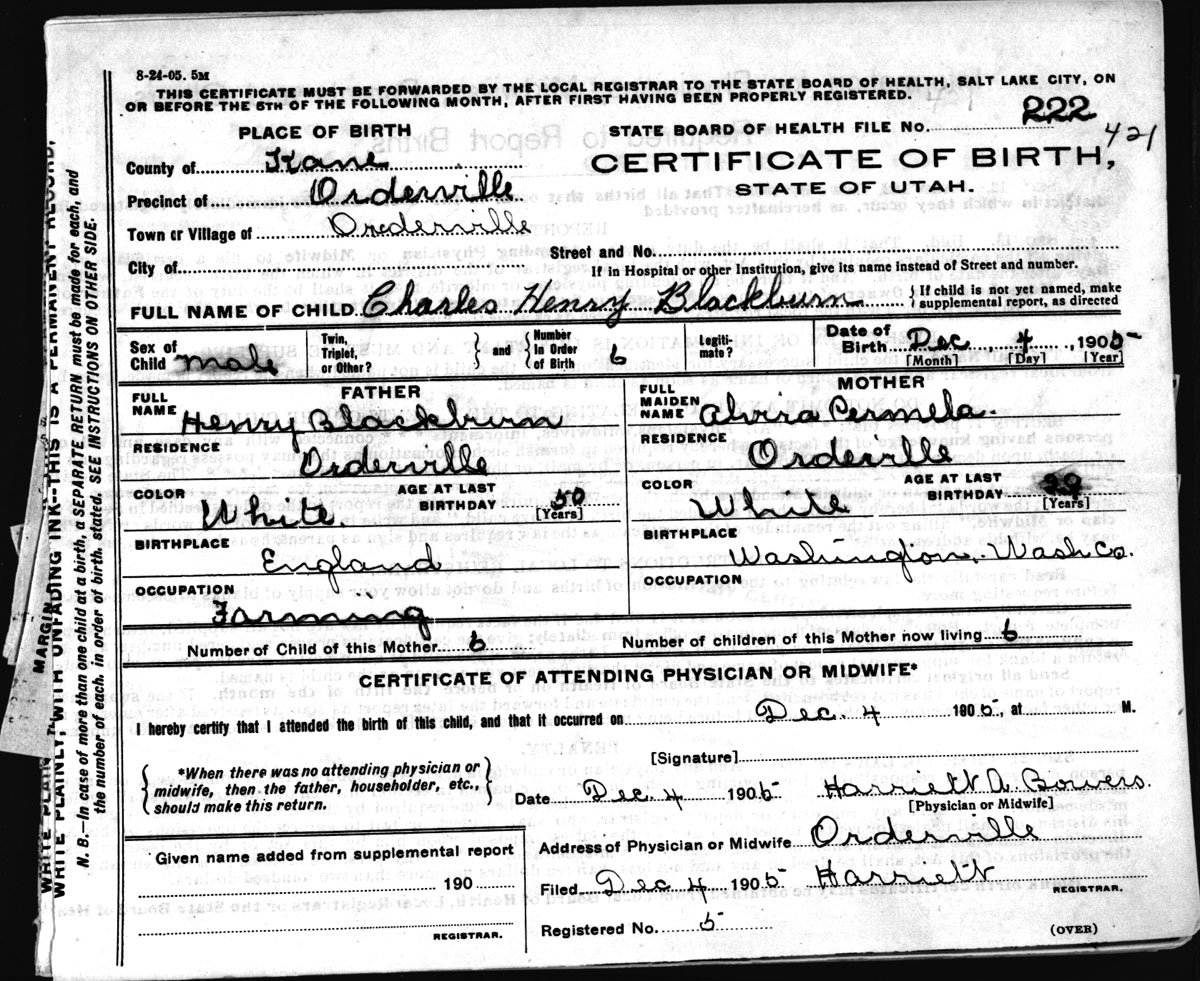 8-24-05. 5M
THIS CERTIFICATE MUST BE FORWARDED BY THE LOCAL REGISTRAR TO THE STATE BOARD OF HEALTH, SALT LAKE CITY, ON
OR BEFORE THE 5TH OF THE FOLLOWING MONTH, AFTER FIRST HAVING BEEN PROPERLY REGISTERED.
421
PLACE OF BIRTH
STATE BOARD OF HEALTH FILE No. 222
421
County of Kane
CERTIFICATE OF BIRTH,
STATE OF UTAH.
Precinct of Orderville
Town or Village of Orederville
Street and No.
City of
If in Hospital or other Institution, give its name instead of Street and number.
FULL NAME OF CHILD Charles Henry Blackburn { If child is not yet named, make supplemental report, as directed
Sex of Child male Twin, Triplet, or Other? and { Number in Order of Birth 6 Legitimate? Date of Birth Dec 4, 1905
[Month] [Day] [Year]
FATHER
FULL NAME Henry Blackburn
RESIDENCE Orderville
COLOR White AGE AT LAST BIRTHDAY 50 [Years]
BIRTHPLACE England
OCCUPATION Farming
MOTHER
FULL MAIDEN NAME Alvria Permela.
RESIDENCE Orderville
COLOR White AGE AT LAST BIRTHDAY 39 [Years]
BIRTHPLACE Washington, Wash Co.
OCCUPATION
Number of Child of this Mother 6 Number of children of this Mother now living 6
CERTIFICATE OF ATTENDING PHYSICIAN OR MIDWIFE*
I hereby certify that I attended the birth of this child, and that it occurred on Dec. 4 1905, at M.
{ *When there was no attending physician or
midwife, then the father, householder, etc.,
should make this return. }
[Signature]
Date Dec. 4 1905 Harriett A. Bowers.
[Physician or Midwife]
Address of Physician or Midwife Orderville
Given name added from supplemental report
190
REGISTRAR.
Filed Dec 4 1905 Harriett
REGISTRAR.
Registered No. 5
(OVER)
WRITE PLAINLY, WITH UNFADING INK-THIS IS A PERMANENT RECORD,
N. B.—In case of more than one child at a birth, a SEPARATE RETURN must be made for each, and
the number of each, in order of birth, stated. SEE INSTRUCTIONS ON OTHER SIDE.